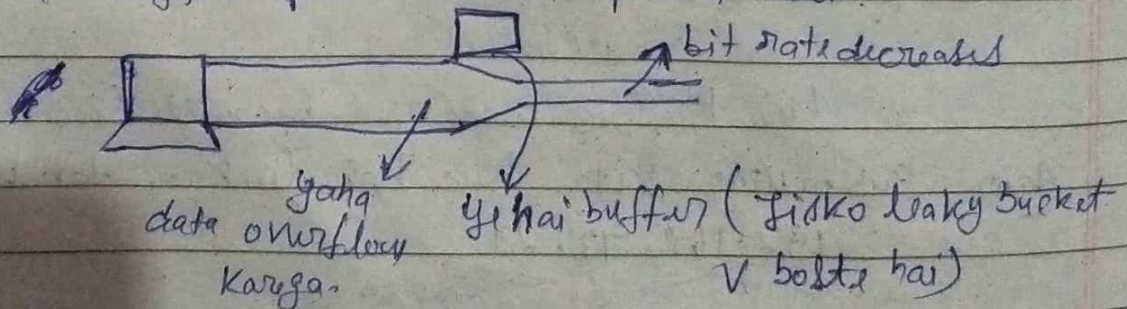 bit rate decreases
yaha
data overflow
karega.
ye hai buffer (jisko leaky bucket
v bolte hai)